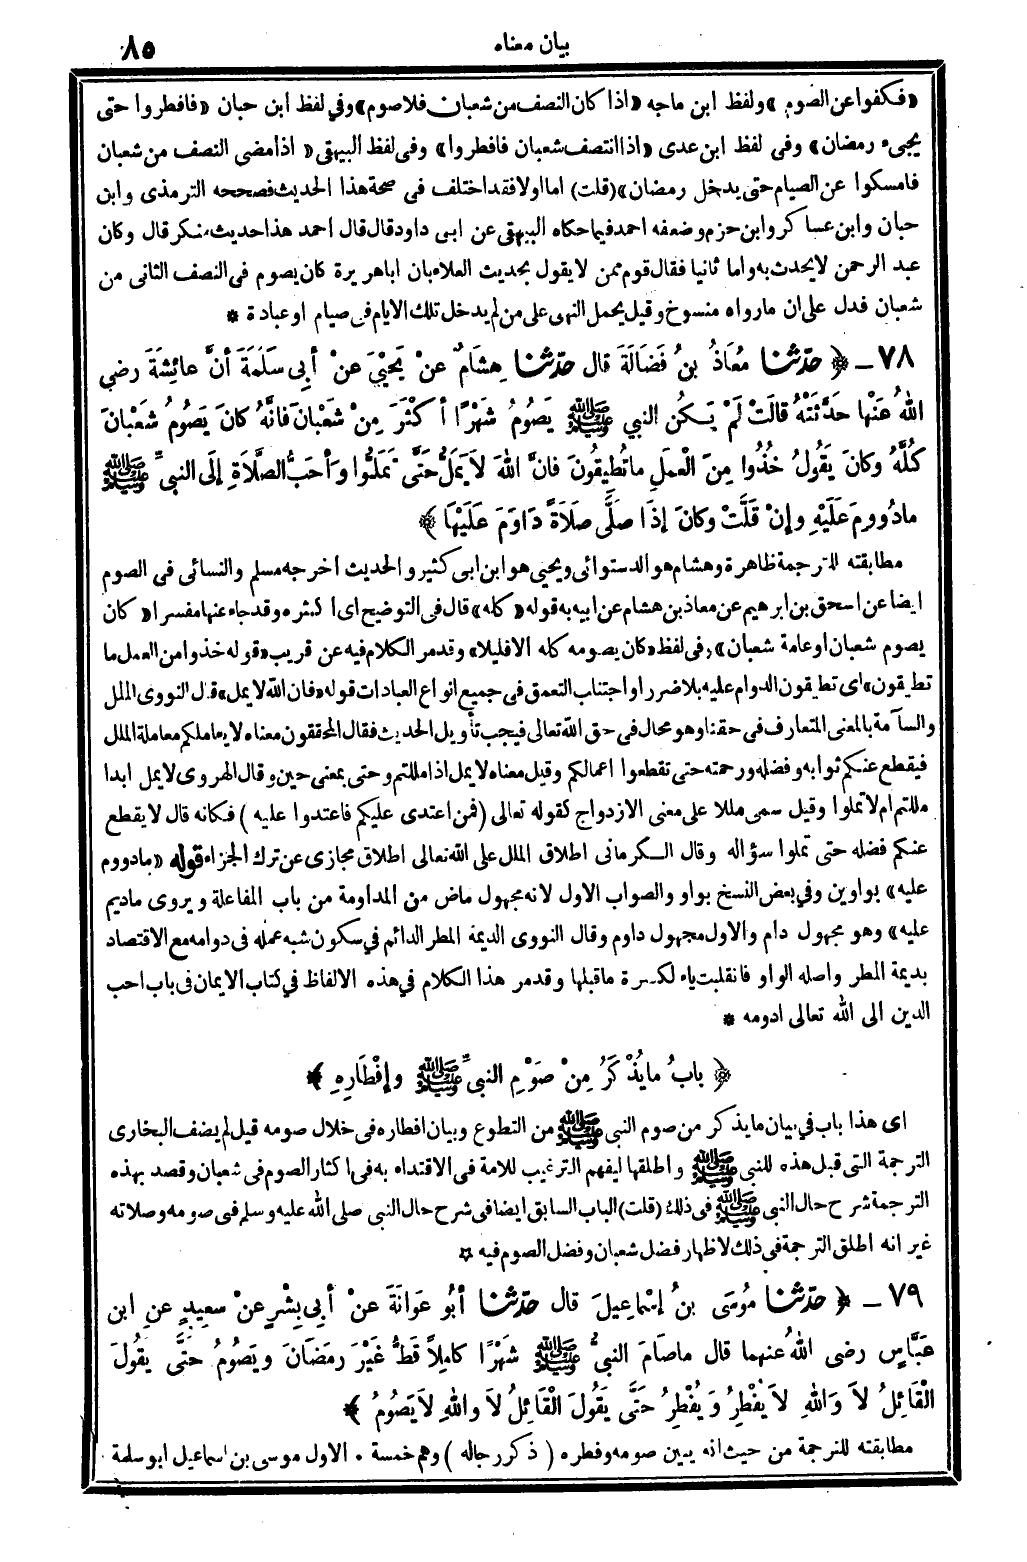 بيان معناه ٨٥
«فكفوا عن الصوم» ولفظ ابن ماجه «اذا كان النصف من شعبان فلا صوم» وفي لفظ ابن حبان «فافطروا حتى
يجىء رمضان» وفى لفظ ابن عدى «اذا انتصف شعبان فافطروا» وفى لفظ البيهقى «اذا مضى النصف من شعبان
فامسكوا عن الصيام حتى يدخل رمضان» (قلت) اما اولا فقد اختلف فى صحة هذا الحديث فصححه الترمذى وابن
حبان وابن عساكر وابن حزم وضعفه احمد فيما حكاه البيهقى عن ابى داود قال قال احمد هذا حديث منكر قال وكان
عبد الرحمن لا يحدث به واما ثانيا فقال قوم ممن لا يقول بحديث العلاء بان ابا هريرة كان يصوم فى النصف الثانى من
شعبان فدل على ان ما رواه منسوخ وقيل يحمل النهى على من لم يدخل تلك الايام فى صيام او عبادة *
٧٨ ـ ﴿ حدّثنا مُعَاذُ بنُ فَضَالَةَ قال حدّثنا هِشَامٌ عنْ يَحْيَى عنْ أبِى سَلَمَةَ أنَّ عائِشَةَ رضى
اللهُ عَنْها حَدَّثَتْهُ قالَتْ لَمْ يَكُنِ النبي ﷺ يَصُومُ شَهْرًا أكْثَرَ مِنْ شَعْبَانَ فَانَّهُ كانَ يَصُومُ شَعْبَانَ
كُلَّهُ وكانَ يَقُولُ خُذُوا مِنَ الْعَمَلِ ما تُطِيقُونَ فَانَّ اللهَ لاَ يَمَلُّ حَتَّى تَمَلُّوا وأحَبُّ الصَّلاَةِ إلَى النبيِّ ﷺ
ما دُووِمَ عَلَيْهِ وإنْ قَلَّتْ وكانَ إذَا صَلَّى صَلاَةً دَاوَمَ عَلَيْهَا ﴾
مطابقته للترجمة ظاهرة وهشام هو الدستوائى ويحيى هو ابن ابى كثير والحديث اخرجه مسلم والنسائى فى الصوم
ايضا عن اسحق بن ابرهيم عن معاذ بن هشام عن ابيه به قوله «كله» قال فى التوضيح اى اكثره وقد جاء عنها مفسرا «كان
يصوم شعبان او عامة شعبان» وفى لفظ «كان يصومه كله الا قليلا» وقد مر الكلام فيه عن قريب «قوله خذوا من العمل ما
تطيقون» اى تطيقون الدوام عليه بلا ضرر او اجتناب التعمق فى جميع انواع العبادات قوله «فان الله لا يمل» قال النووى الملل
والسآمة بالمعنى المتعارف فى حقنا وهو محال فى حق الله تعالى فيجب تأويل الحديث فقال المحققون معناه لا يعاملكم معاملة الملل
فيقطع عنكم ثوابه وفضله ورحمته حتى تقطعوا اعمالكم وقيل معناه لا يمل اذا مللتم وحتى بمعنى حين وقال الهروى لا يمل ابدا
مللتم ام لا تملوا وقيل سمى مللا على معنى الازدواج كقوله تعالى (فمن اعتدى عليكم فاعتدوا عليه) فكانه قال لا يقطع
عنكم فضله حتى تملوا سؤاله وقال الكرمانى اطلاق الملل على الله تعالى اطلاق مجازى عن ترك الجزاء قوله «ما دووم
عليه» بواوين وفي بعض النسخ بواو والصواب الاول لانه مجهول ماض من المداومة من باب المفاعلة ويروى ماديم
عليه» وهو مجهول دام والاول مجهول داوم وقال النووى الديمة المطر الدائم في سكون شبه عمله فى دوامه مع الاقتصاد
بديمة المطر واصله الواو فانقلبت ياء لكسرة ما قبلها وقد مر هذا الكلام في هذه الالفاظ في كتاب الايمان فى باب احب
الدين الى الله تعالى ادومه *
﴿ بابُ ما يُذْكَرُ مِنْ صَوْمِ النبيِّ ﷺ وإفْطَارِهِ ﴾
اى هذا باب في بيان ما يذكر من صوم النبى ﷺ من التطوع وبيان افطاره فى خلال صومه قيل لم يضف البخارى
الترجمة التى قبل هذه للنبى ﷺ واطلقها ليفهم الترغيب للامة فى الاقتداء به فى اكثار الصوم فى شعبان وقصد بهذه
الترجمة شرح حال النبى ﷺ فى ذلك (قلت) الباب السابق ايضا فى شرح حال النبى صلى الله عليه وسلم فى صومه وصلاته
غير انه اطلق الترجمة فى ذلك لاظهار فضل شعبان وفضل الصوم فيه *
٧٩ ـ ﴿ حدّثنا مُوسَى بنُ إسْمَاعِيلَ قال حدّثنا أبُو عَوَانَةَ عنْ أبِى بِشْرٍ عنْ سعِيدٍ عنِ ابن
عَبَّاسٍ رضى اللهُ عنهما قال ما صَامَ النبيُّ ﷺ شَهْرًا كامِلاً قَطُّ غَيْرَ رمَضَانَ ويَصُومُ حتَّى يقُولَ
الْقَائِلُ لاَ وَاللهِ لاَ يُفْطِرُ وَيُفْطِرُ حتَّى يَقُولَ الْقَائِلُ لاَ واللهِ لاَ يَصُومُ ﴾
مطابقته للترجمة من حيث انه يبين صومه وفطره (ذكر رجاله) وهم خمسة . الاول موسى بن اسماعيل ابو سلمة